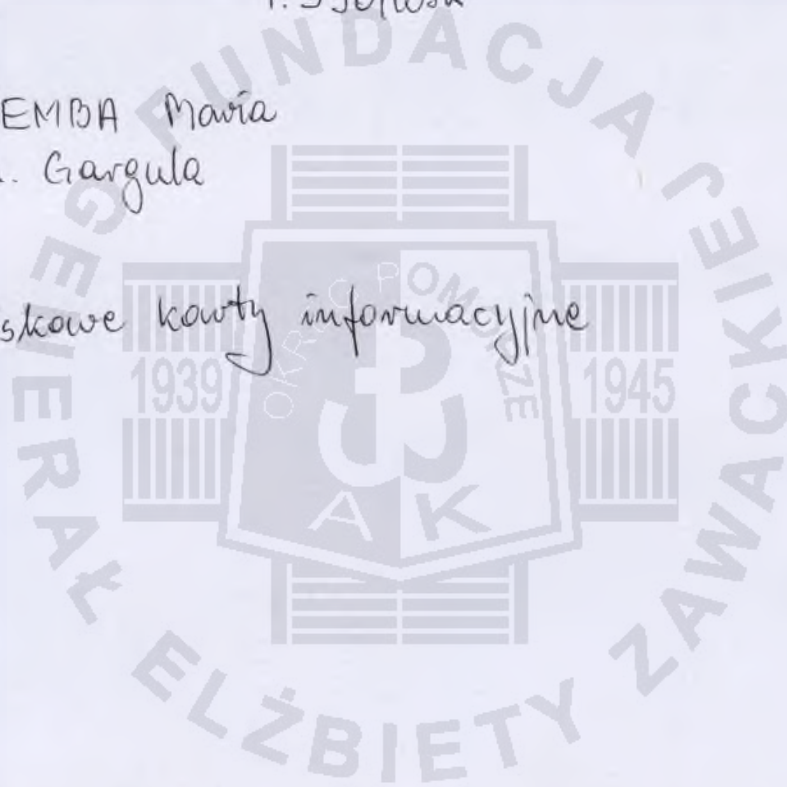 EMBA Maria
Gargula
skowe karty informacyjne
FUNDACJA JEJ
GENERAŁ ELŻBIETY ZAWACKIEJ
OKRĘG POMORZE
1939
1945
A K